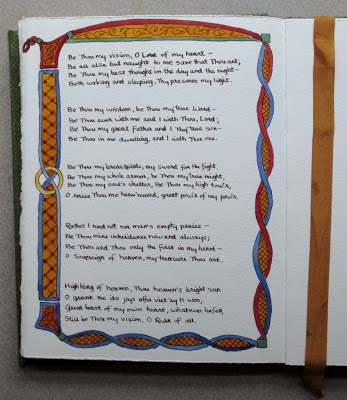 Be Thou my vision, O Lord of my heart –
Be all else but naught to me save that Thou art;
Be Thou my best thought in the day and the night –
Both waking and sleeping, Thy presence my light.
Be Thou my wisdom, be Thou my true Word –
Be Thou ever with me and I with Thou, Lord;
Be Thou my great Father and I Thy true son –
Be Thou in me dwelling, and I with Thee one.
Be Thou my breastplate, my sword for the fight,
Be Thou my whole armor, be Thou my true might,
Be Thou my soul's shelter, Be Thou my high tow'r,
O raise Thou me heav'nward, great pow'r of my pow'r.
Riches I need not nor man's empty praise –
Be Thou mine inheritance now and always;
Be Thou and Thou only the first in my heart –
O Sovereign of heaven, my treasure Thou art.
High king of heaven, Thou heaven's bright sun
O grant me its joys after vict'ry is won,
Great heart of my own heart, whatever befall,
Still be Thou my vision, O Ruler of all.